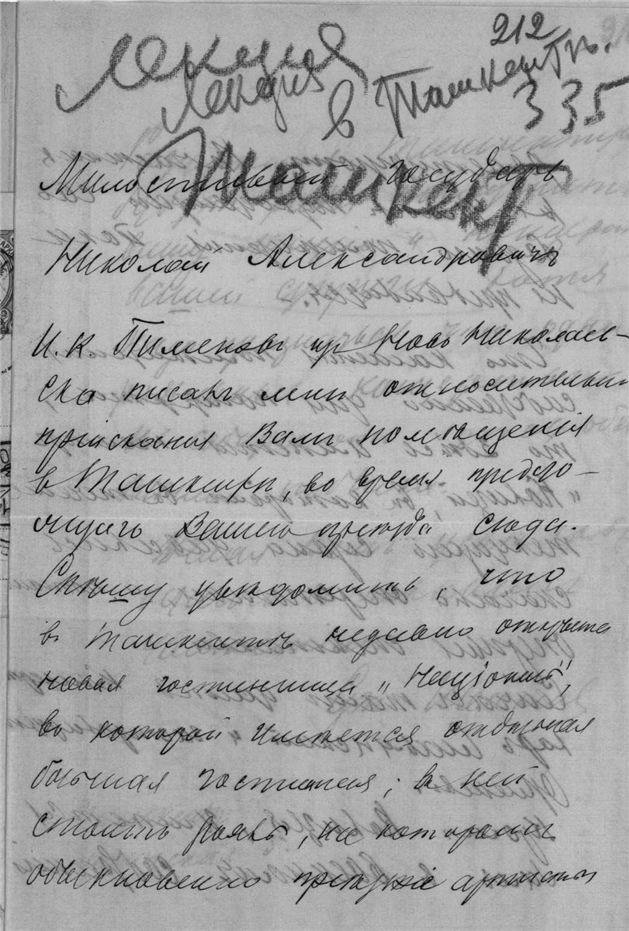 212
Лекция
Лекция
в Ташкентъ.
335
Ташкент
Милостивый Государь
Николай Александровичъ
И. К. Пименовъ изъ Ново Николаев-
ска писалъ мнѣ относительно
пріисканія Вамъ помѣщенія
въ Ташкентѣ, во время предсто-
ящаго Вашего пріѣзда сюда.
Спѣшу увѣдомить, что
въ Ташкентѣ недавно открыта
новая гостинница „Націоналъ",
въ которой имѣется отдѣльная
большая гостиная; въ ней
стоитъ рояль, на которомъ
обыкновенно пріѣзжіе артисты